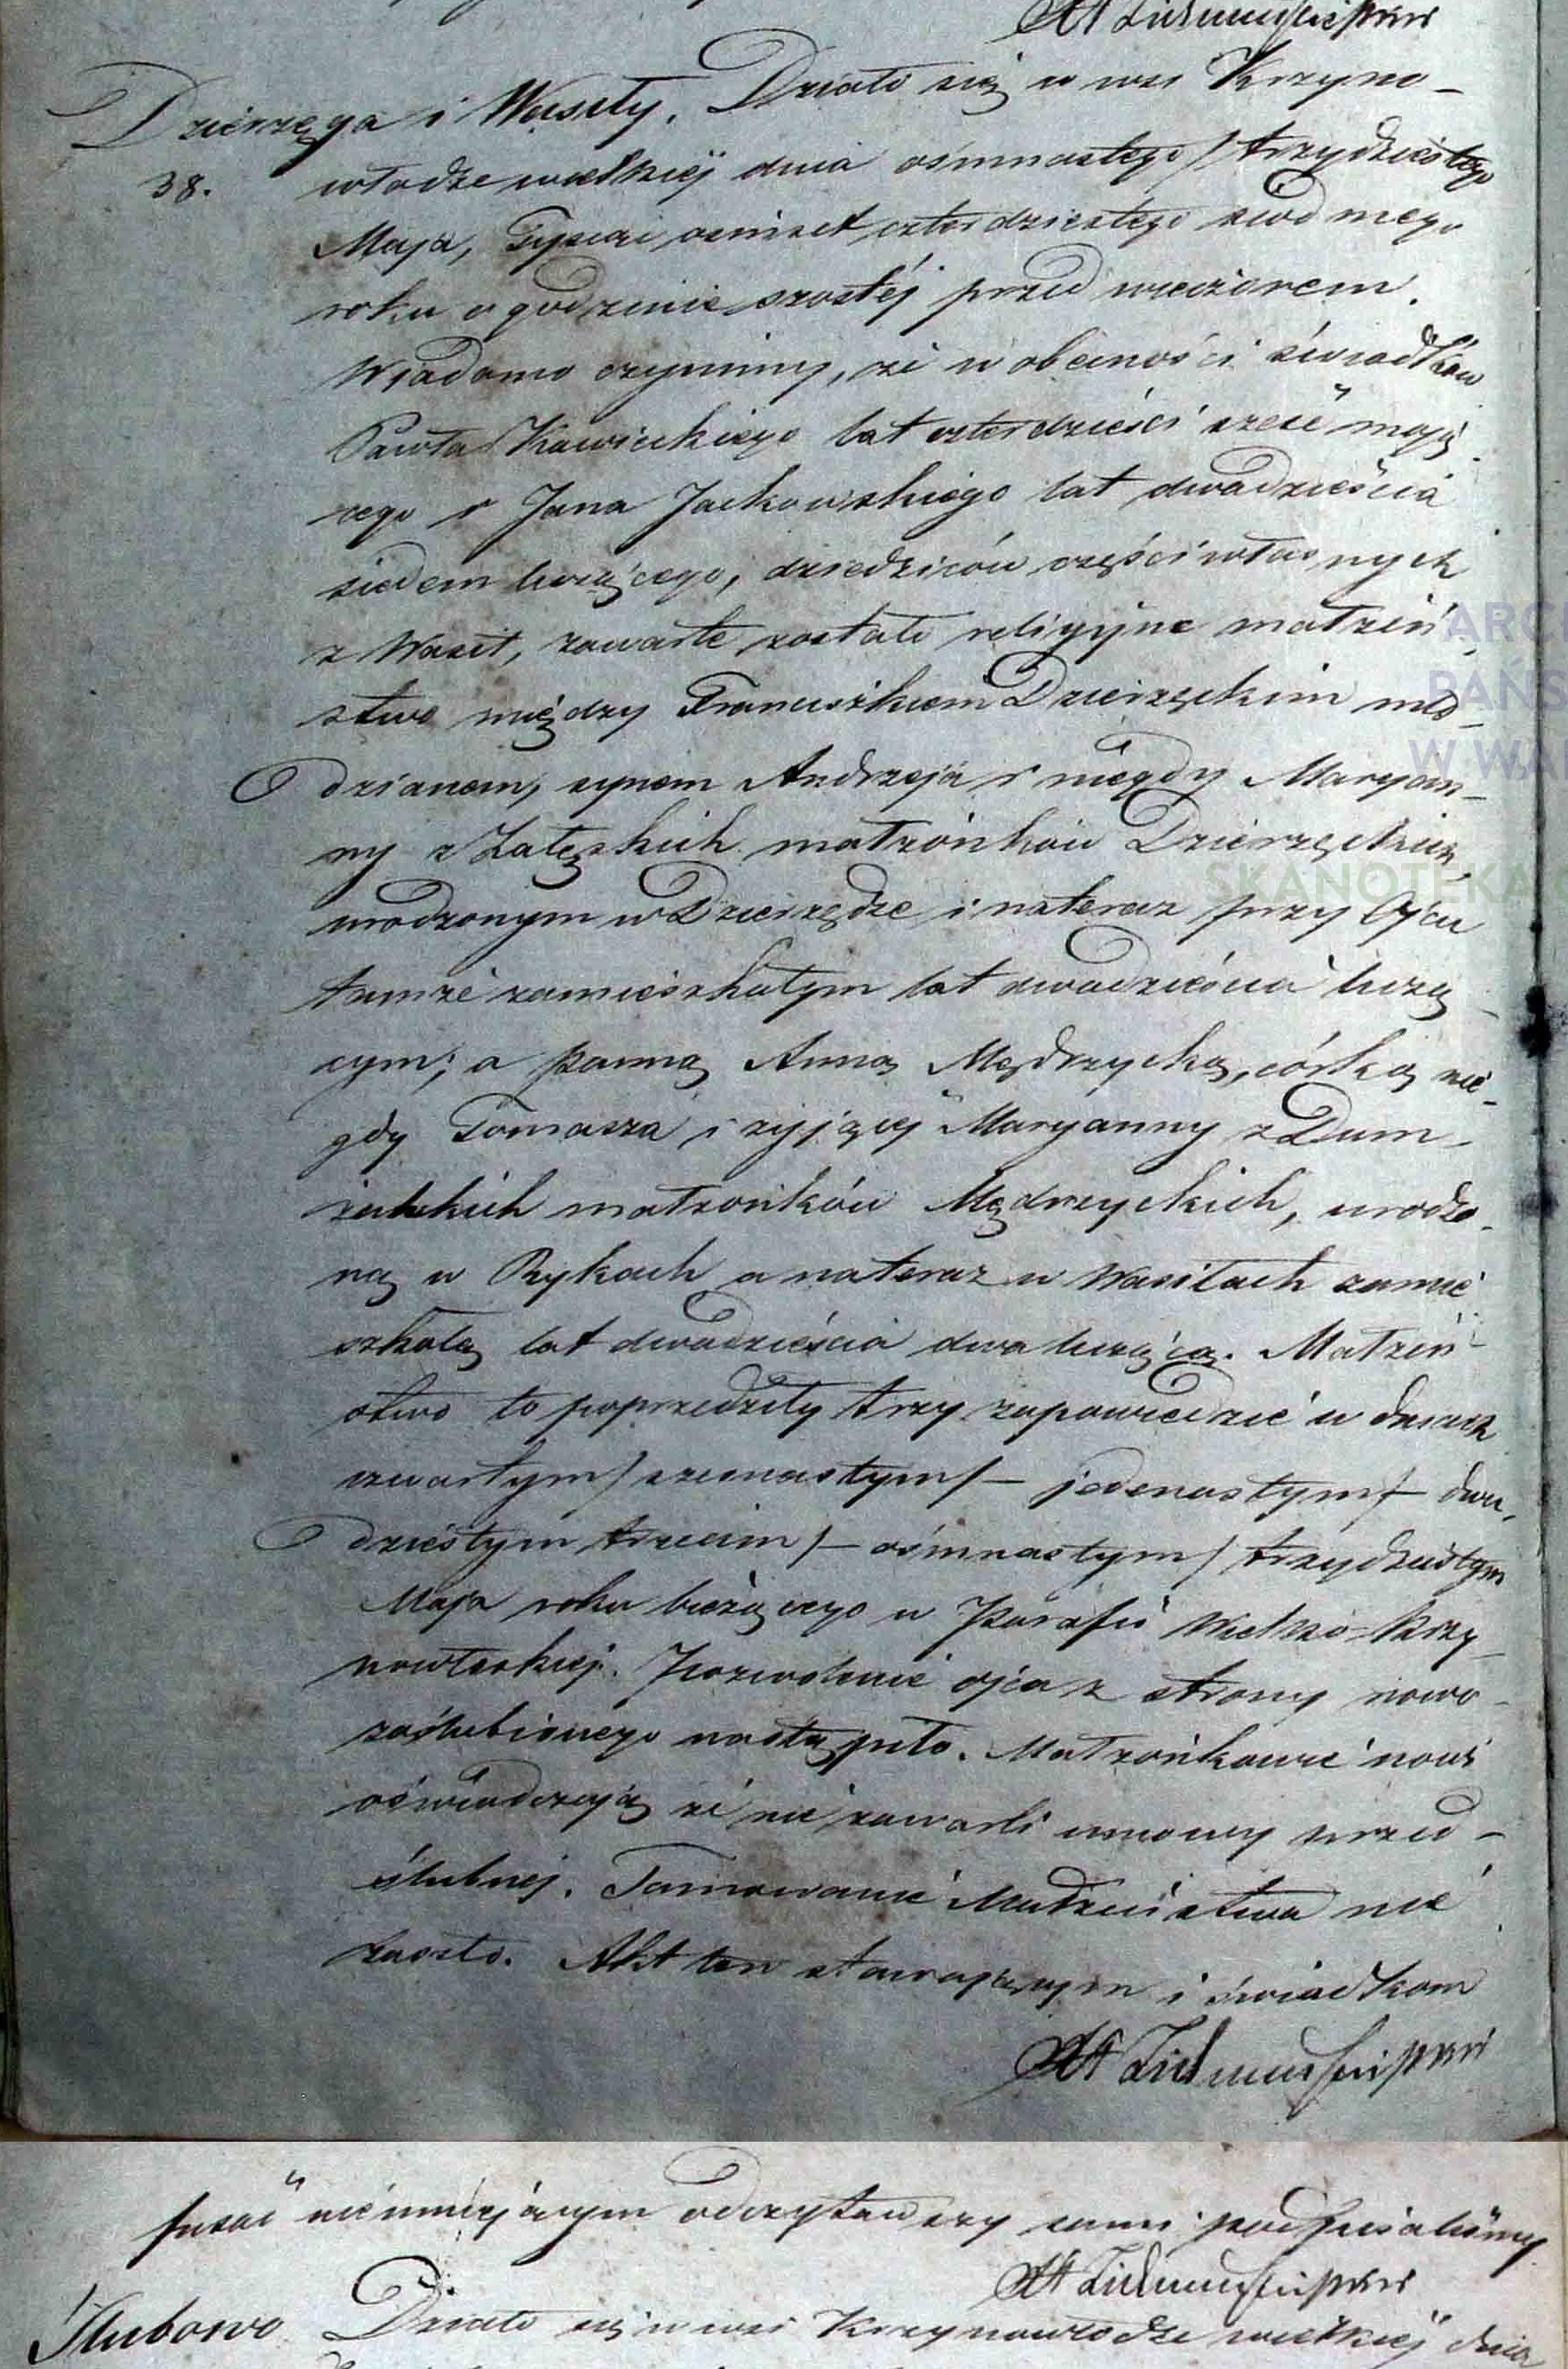 Dzierzęga i Wasiły. Działo się w wsi Krzyno-
38.
włodze wielkiéj dnia ośmnastego / trzydziestego
Maja, Tysiąc ośmset czterdziestego siodmego
roku o godzinie szostéj przed wieczorem.
Wiadomo czynimy, że w obecności świadków
Pawła Kawieckiego lat czterdzieści sześć mają-
cego i Jana Jackowskiego lat dwadzieścia
siedem liczącego, dziedziców części własnych
z Wasił, zawarte zostało religijne małżeń-
stwo między Franciszkiem Dzierzęckim mło-
dzianem, synem Andrzeja i niegdy Maryan-
ny z Załęskich małżonków Dzierzęckich,
urodzonym w Dzierzędze i nateraz przy Ojcu
tamże zamieszkałym lat dwadzieścia liczą-
cym; a panną Anną Mędrzycką, córką nie-
gdy Tomasza i żyjącej Maryanny z Dum-
małżonków Mędrzyckich, urodzo-
ną w Rykach a nateraz w Wasiłach zamie
szkałą lat dwadzieścia dwa liczącą. Małżeń-
stwo to poprzedziły trzy zapowiedzie w dniach
czwartym / szesnastym / – jedenastym / – dwu-
dziestym trzecim / – ośmnastym / trzydziestym
Maja roku bieżącego w Parafii Wielko-Krzy-
nowłoskiej. Pozwolenie ojca z strony nowo-
zaślubionego nastąpiło. Małżonkowie nowi
oświadczają że nie zawarli umowy przed-
ślubnej. Tamowanie Małżeństwa nie
zaszło. Akt ten stawającym i świadkom
pisać nieumiejącym odczytawszy sami podpisaliśmy
Ślubowo Działo się w wsi Krzynowłodze wielkiéj dnia